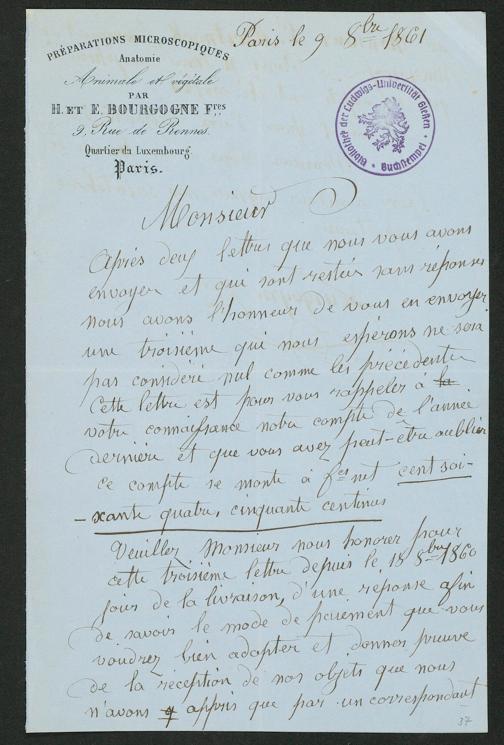 PRÉPARATIONS MICROSCOPIQUES
Anatomie
Animale et végétale
PAR
H. ET E. BOURGOGNE Fres
9, Rue de Rennes.
Quartier du Luxembourg
Paris.
Paris le 9 8bre 1861
Bibliothek der Ludwigs-Universität Gießen
Buchstempel
Monsieur
Après deux lettres que nous vous avons
envoyer et qui sont restées sans réponses
nous avons l'honneur de vous en envoyer
une troisième qui nous espérons ne sera
pas considéré nul comme les précédentes
Cette lettre est pour vous rappeler à la
votre connaissance notre compte de l'année
dernière et que vous avez peut-être oublier
ce compte se monte à fcs net cent soi-
-xante quatre, cinquante centimes
Veuillez Monsieur nous honorer pour
cette troisième lettre depuis le 18 8bre 1860
jour de la livraison, d'une reponse afin
de savoir le mode de paiement que vous
voudrez bien adopter et donner preuve
de la réception de nos objets que nous
n'avons q appris que par un correspondant
37